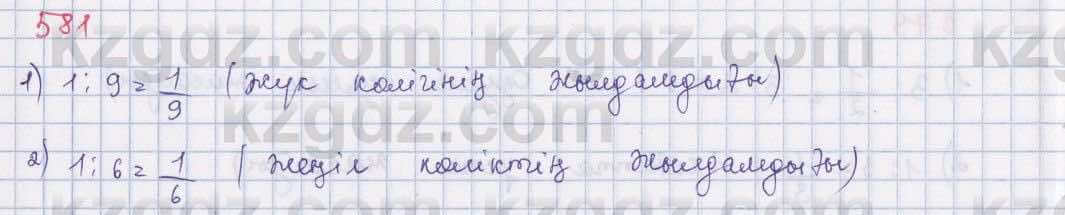 581
kzgdz.com kzgdz.com kz
1) 1 : 9 = 1/9 (жүк көлігінің жылдамдығы)
kzgdz.com
2) 1 : 6 = 1/6 (жеңіл көліктің жылдамдығы)
kzgdz.com kzgdz.com kz